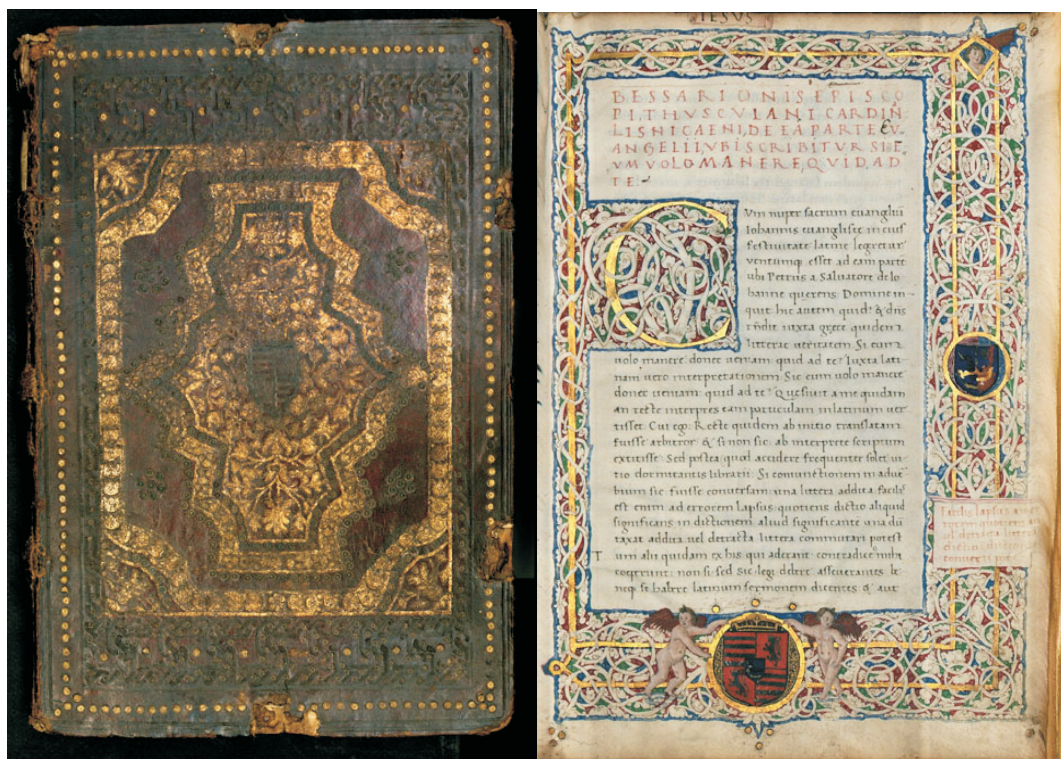 IESUS
BESSARIONIS EPISCO
PI, THUSCULANI CARDIN
LIS NICAENI, DE EA PARTE EV
ANGELII, UBI SCRIBITUR SI E
UM VOLO MANERE, QUID AD
TE
Cum nuper sacrum euangelii
Iohannis euangliste in eius
festiuitate latine legeretur
uentumq esset ad eam parte
ubi Petrus a Saluatore de Io
hanne querens: Domine in
quit hic autem quid? & dns
rndit iuxta grece quidem
litterae ueritatem Si eum
uolo manere donec ueniam quid ad te? Iuxta lati
nam uero interpretationem Sic eum uolo manere
donec ueniam quid ad te? Quesiuit a me quidam
an recte interpres eam particulam in latinum uer
tisset. Cui ego: Recte quidem ab initio translatam
fuisse arbitror & si non sic ab interprete scriptum
extitisse. Sed postea quod accidere frequenter solet ui
tio dormitantis librarii: Si coniunctionem in aduer
bium sic fuisse conuersam una littera addita facilis
est enim ad errorem lapsus quotiens dictio aliquid
significans in dictionem aliud significante una du
taxat addita uel detracta littera commutari potest
T um alii quidam ex his qui aderant contradicere mihi
ceperunt: non si sed sic legi debere asseuerantes
neq se habere latinum sermonem dicentes & aut
facilis lapsus
quotiens
uel detracta littera
dictio